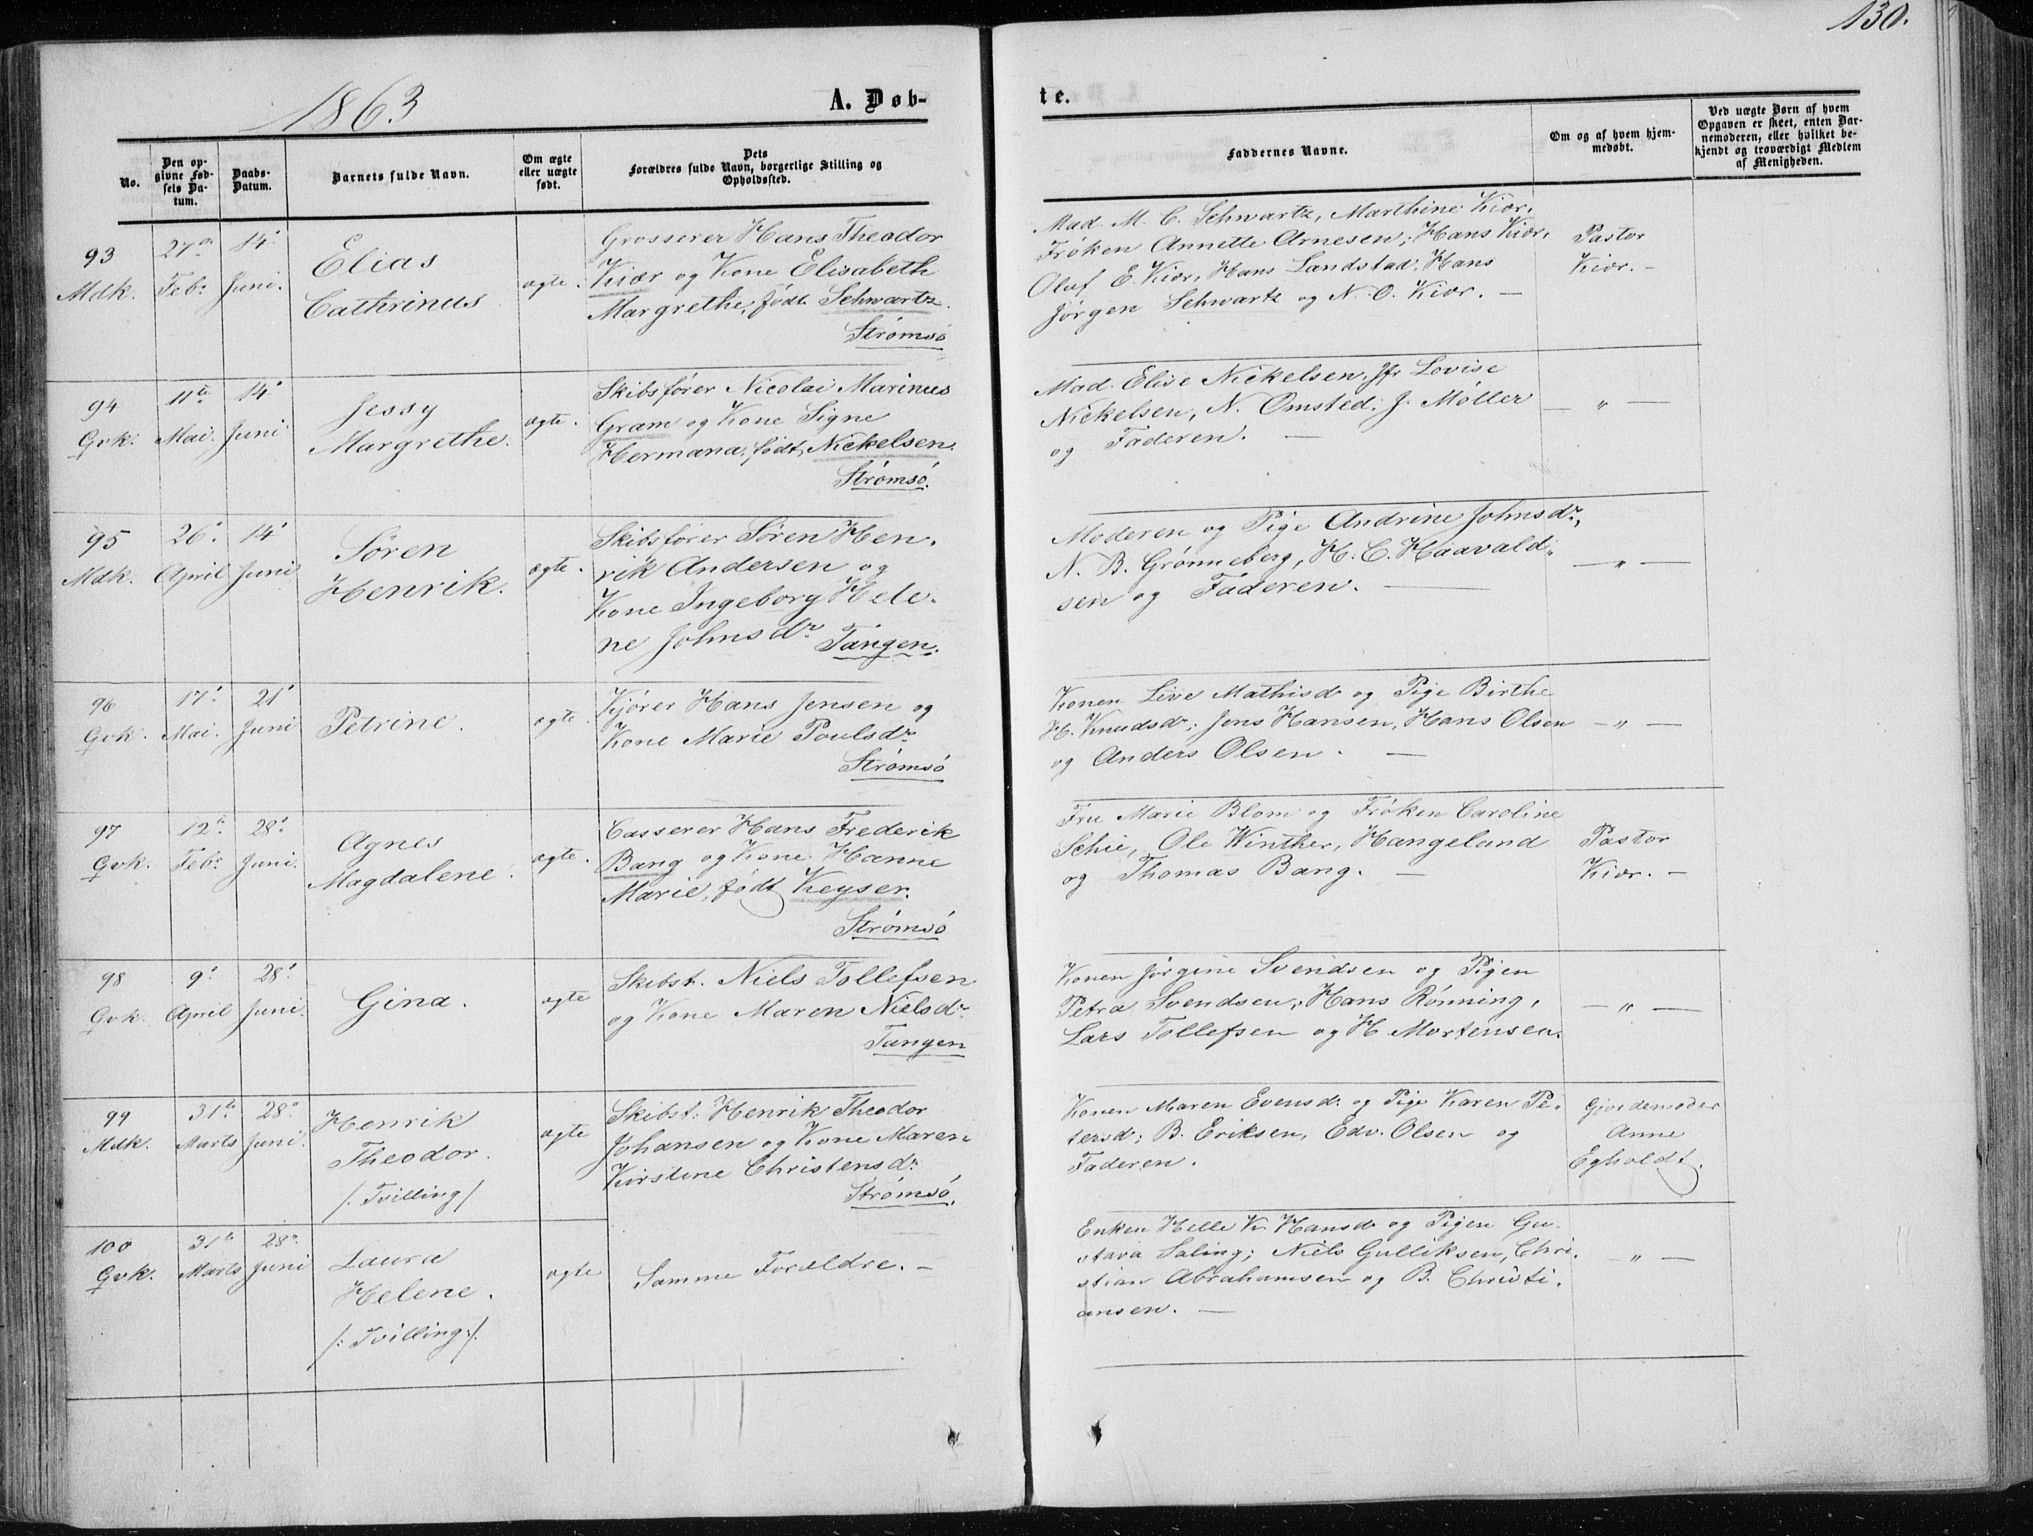 130.
1863
A. Døb-
te.
No.
Den op-
givne Fød-
sels Da-
tum.
Daabs-
Datum.
Barnets fulde Navn.
Om ægte
eller uægte
født.
Dets
Forældres fulde Navn, borgerlige Stilling og
Opholdssted.
Faddernes Navne.
Om og af hvem hjem-
medøbt.
Ved uægte Børn af hvem
Opgaven er skeet, enten Bar-
nemoderen, eller hvilket be-
kjendt og troværdigt Medlem
af Menigheden.
93
Mdk.
27de
Feb:
14'
Juni.
Elias
Cathrinus
ægte.
Grosserer Hans Theodor
Kiær og Kone Elisabeth
Margrethe, født Schwartz.
Strømsö
Mad. M. C. Schwartz, Marthine Kiær,
Fröken Annette Arnesen; Hans Kiær,
Oluf E. Kiær, Hans Landstad, Hans
Jörgen Schwartz og N. O. Kiær. —
Pastor
Kiær. —
94
Qvk.
11te
Mai.
14'
Juni
Jessy
Margrethe.
ægte.
Skibsfører Nicolai Marinus
Gram og Kone Signe
Hermana, født Nickelsen.
Strømsö.
Mad. Elise Nickelsen, Jfr Lovise
Nickelsen, N. Omsted, J. Møller
og Faderen. —
— " —
95
Mdk.
26'
April
14'
Juni
Sören
Henrik.
ægte.
Skibsfører Sören Hen-
rik Andersen og
Kone Ingeborg Hele-
ne Johnsdr Tangen.
Moderen og Pige Andrine Johnsdr,
N. B. Grønneberg, H. C. Haavald-
sen og Faderen. —
— " —
96
Qvk.
17'
Mai.
21'
Juni
Petrine.
ægte.
Kjører Hans Jensen og
Kone Marie Poulsdr
Strømsö
Konen Live Mathisdr og Pige Birthe
H. Knudsdr; Jens Hansen, Hans Olsen
og Anders Olsen. —
— " —
97
Qvk.
12te
Feb:
28'
Juni.
Agnes
Magdalene.
ægte.
Casserer Hans Frederik
Bang og Kone Hanne
Marie, født Keyser.
Strømsö
Fru Marie Blom og Fröken Caroline
Schie, Ole Winther, Hangeland
og Thomas Bang. —
Pastor
Kiær. —
98
Qvk.
9'
April
28'
Juni.
Gina.
ægte
Skibst. Niels Tollefsen
og Kone Maren Nielsdr
Tangen
Konen Jørgine Svendsen og Pigen
Petra Svendsen; Hans Rönning,
Lars Tollefsen og H. Mortensen.
— " —
99
Mdk.
31te
Marts
28'
Juni.
Henrik
Theodor.
/: Tvilling /
ægte
Skibst: Henrik Theodor
Johansen og Kone Maren
Kirstine Christensdr
Strømsö.
Konen Maren Evensdr og Pige Karen Pe-
tersdr; B. Eriksen, Edv. Olsen og
Faderen.
Gjordemoder
Anne
Egholdt.
100
Qvk.
31te
Marts
28'
Juni
Laura
Helene.
/: Tvilling :/.
ægte
Samme Forældre. —
Enken Helle K. Hansdr og Pigen Gu-
stava Saling; Niels Gulliksen, Chri-
stian Abrahamsen og B. Christi-
ansen. —
" —